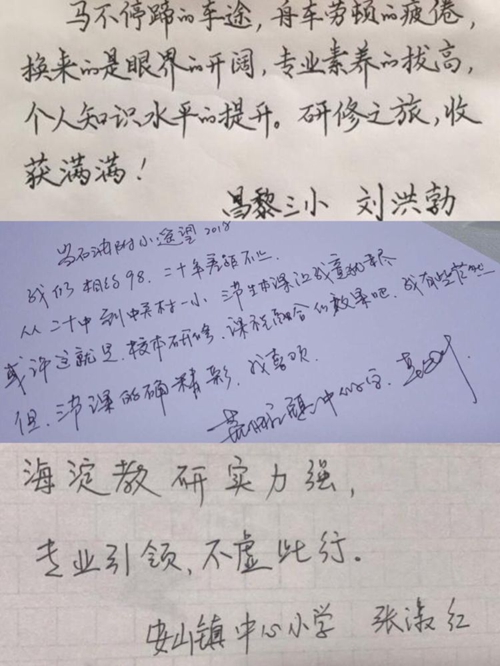 马不停蹄的车途，舟车劳顿的疲倦，
换来的是眼界的开阔，专业素养的拔高，
个人知识水平的提升。研修之旅，收
获满满！
昌黎三小 刘洪勃
附小遥望2018
我们相约98．二十年差距不止
从二十中到中关村一小．节生本课让我意犹未尽
或许这就是．校本研修．课程融合的效果吧．我有些茫然
但．节课的确精彩．我喜欢．
镇中心小学．
海淀教研实力强，
专业引领，不虚此行。
安山镇中心小学 张淑红